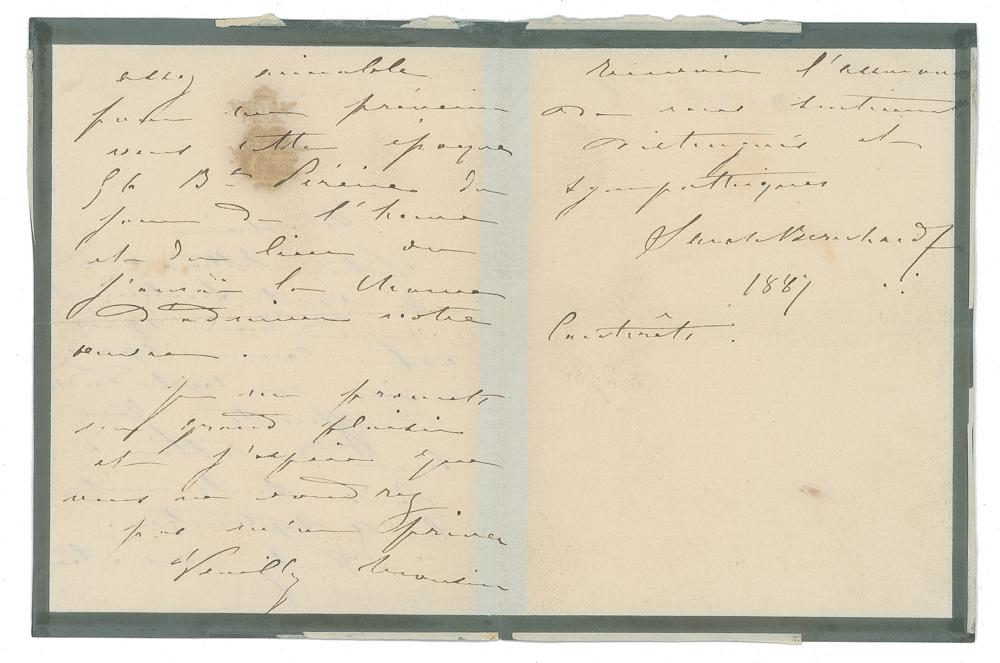 assez aimable
pour me prévenir
vers cette époque
56 Bd Péreire du
jour de l'heure
et du lieu où
j'aurai la chance
d'admirer votre
Je me promets
un grand plaisir
et j'espère que
vous ne voudrez
pas m'en priver
Veuillez Monsieur
recevoir l'assurance
de mes sentiments
distingués et
sympathiques
Sarah Bernhardt
1887
Cauterêts.